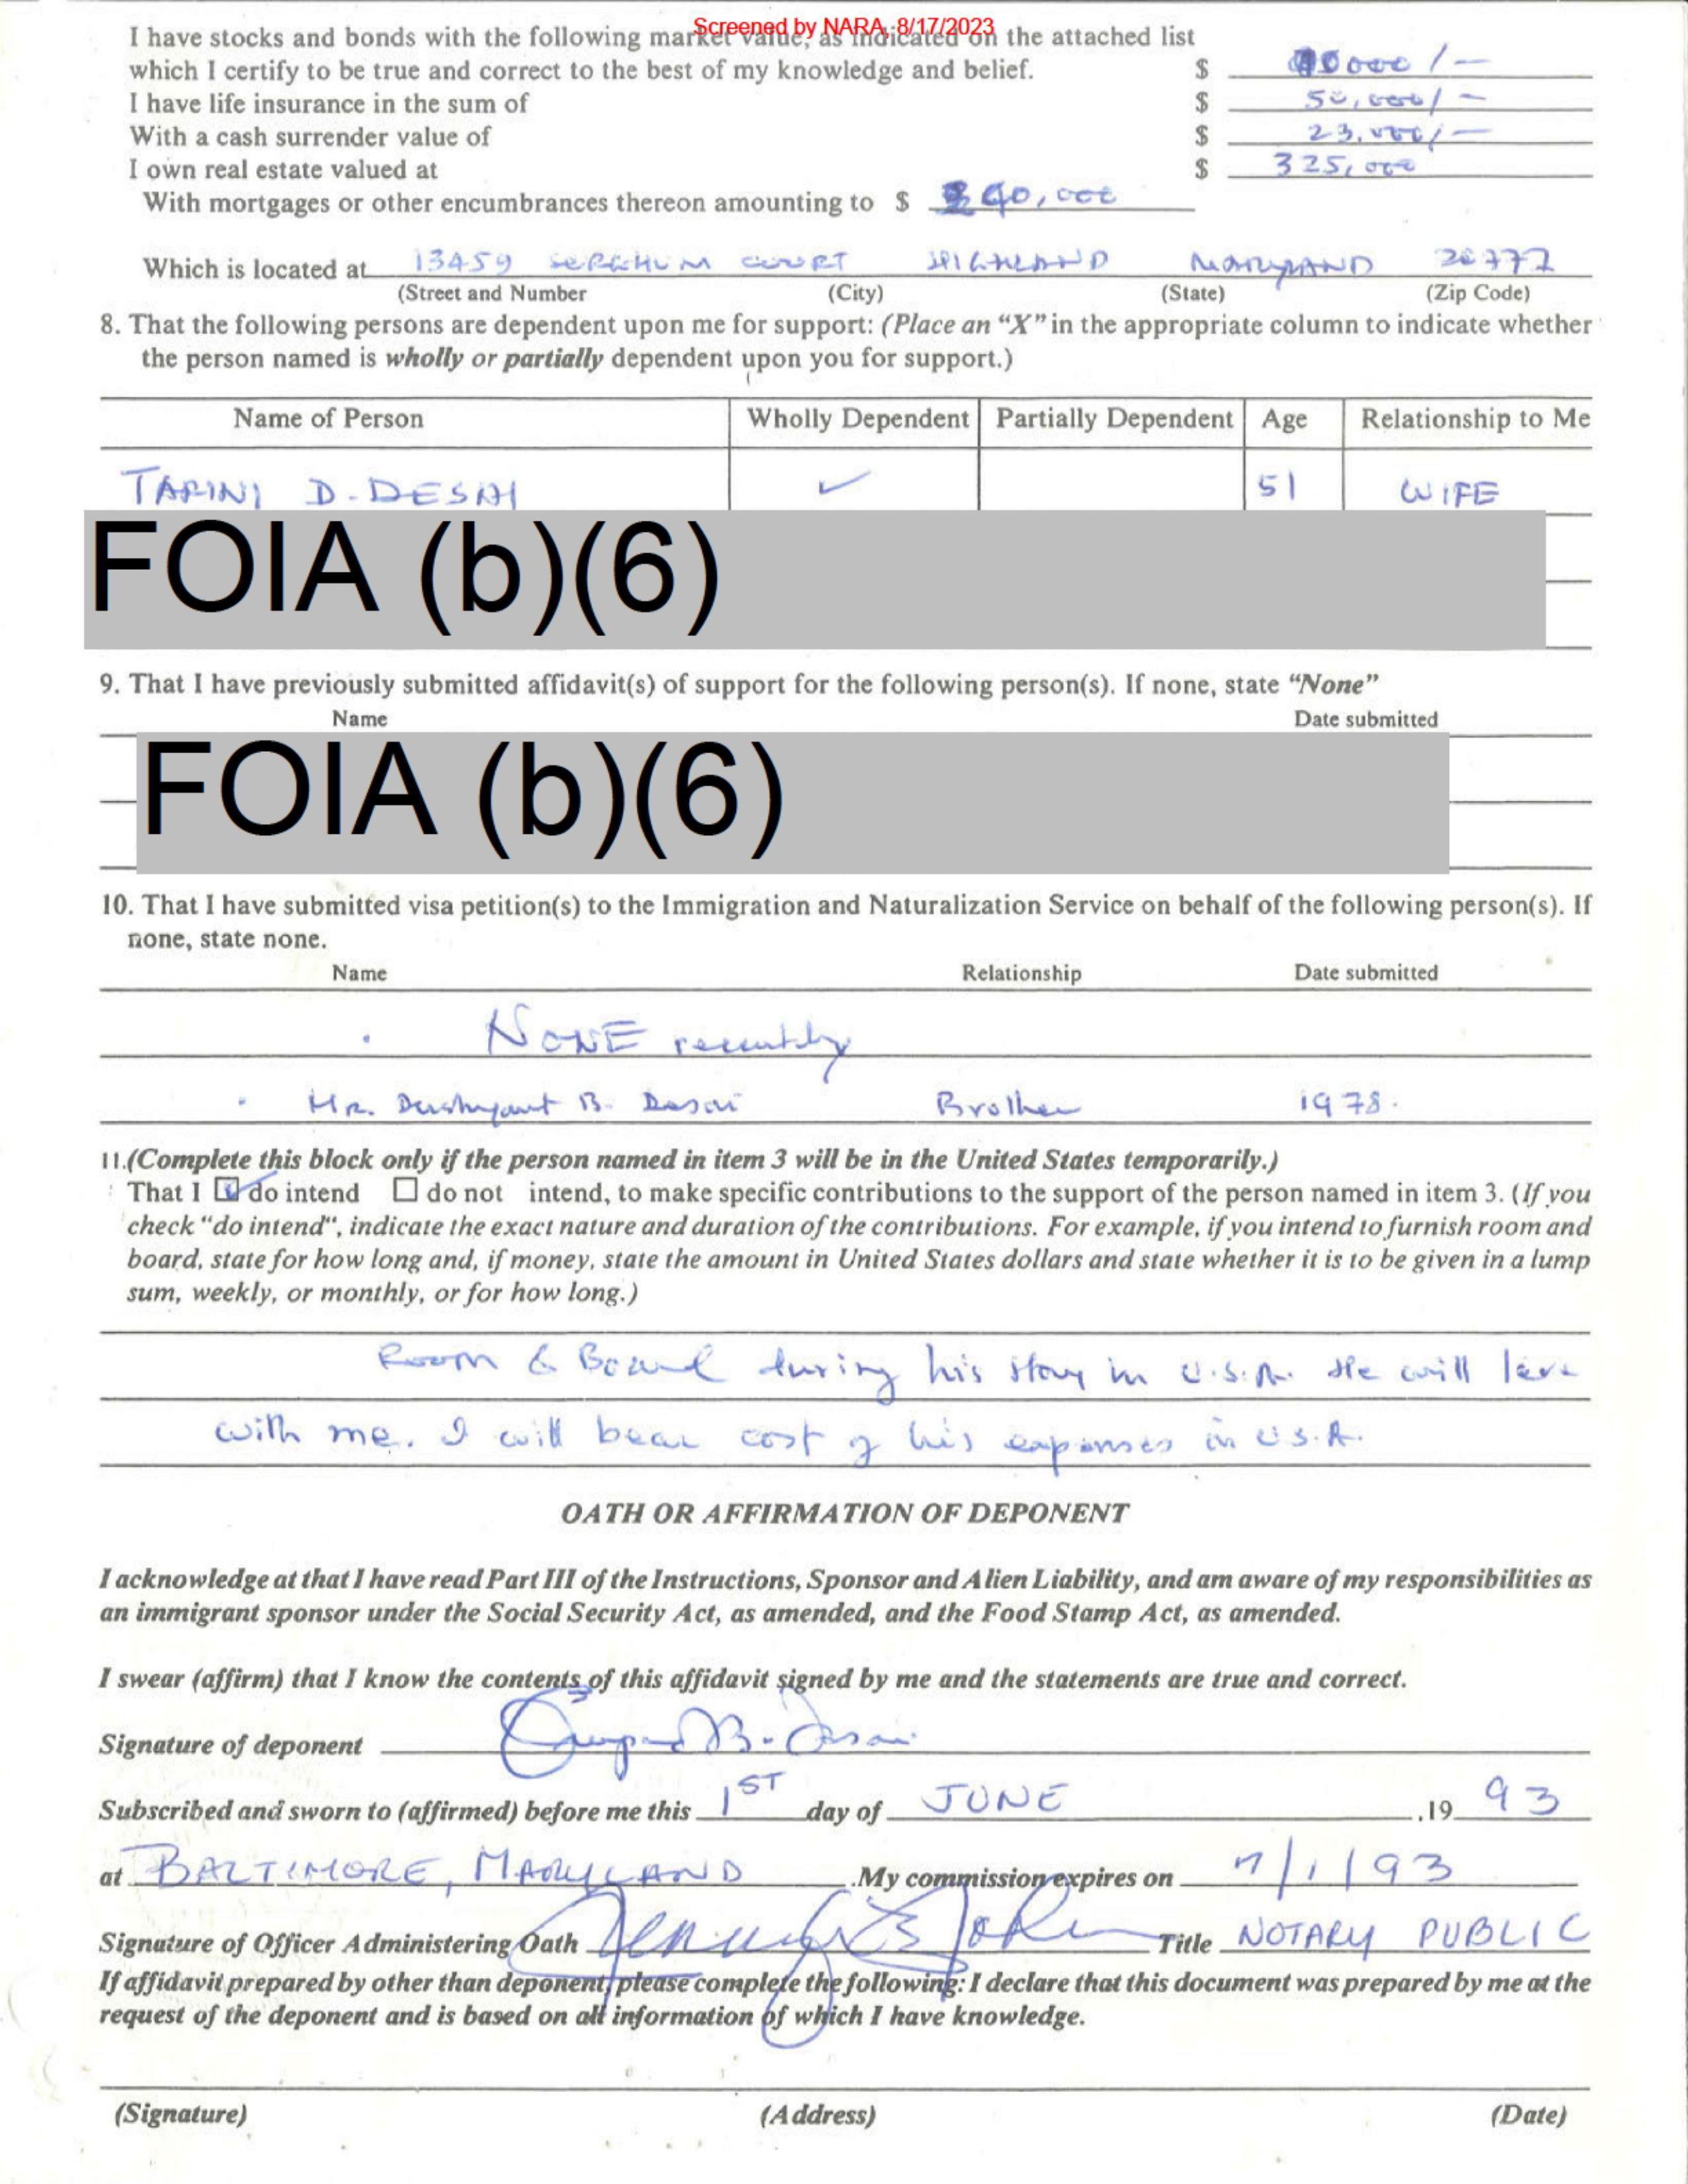 Screened by NARA, 8/17/2023
I have stocks and bonds with the following market value, as indicated on the attached list
which I certify to be true and correct to the best of my knowledge and belief. $ 0000/-
I have life insurance in the sum of $ 50,000/-
With a cash surrender value of $ 23,000/-
I own real estate valued at $ 325,000
With mortgages or other encumbrances thereon amounting to $ 0,000
Which is located at 13459 SORGHUM COURT HIGHLAND MARYLAND 20777
(Street and Number (City) (State) (Zip Code)
8. That the following persons are dependent upon me for support: (Place an “X” in the appropriate column to indicate whether
the person named is wholly or partially dependent upon you for support.)
Name of Person Wholly Dependent Partially Dependent Age Relationship to Me
TARINI D. DESAI ✓ 51 WIFE
FOIA (b)(6)
9. That I have previously submitted affidavit(s) of support for the following person(s). If none, state “None”
Name Date submitted
FOIA (b)(6)
10. That I have submitted visa petition(s) to the Immigration and Naturalization Service on behalf of the following person(s). If
none, state none.
Name Relationship Date submitted
NONE recently
Mr. Dushyant B. Desai Brother 1978.
11.(Complete this block only if the person named in item 3 will be in the United States temporarily.)
That I ☑ do intend ☐ do not intend, to make specific contributions to the support of the person named in item 3. (If you
check “do intend“, indicate the exact nature and duration of the contributions. For example, if you intend to furnish room and
board, state for how long and, if money, state the amount in United States dollars and state whether it is to be given in a lump
sum, weekly, or monthly, or for how long.)
Room & Board during his stay in U.S.A. He will
with me. I will bear cost of his expenses in U.S.A.
OATH OR AFFIRMATION OF DEPONENT
I acknowledge at that I have read Part III of the Instructions, Sponsor and Alien Liability, and am aware of my responsibilities as
an immigrant sponsor under the Social Security Act, as amended, and the Food Stamp Act, as amended.
I swear (affirm) that I know the contents of this affidavit signed by me and the statements are true and correct.
Signature of deponent B. Desai
Subscribed and sworn to (affirmed) before me this 1ST day of JUNE .19 93
at BALTIMORE, MARYLAND .My commission expires on 7/1/93
Signature of Officer Administering Oath Title NOTARY PUBLIC
If affidavit prepared by other than deponent, please complete the following: I declare that this document was prepared by me at the
request of the deponent and is based on all information of which I have knowledge.
(Signature) (Address) (Date)